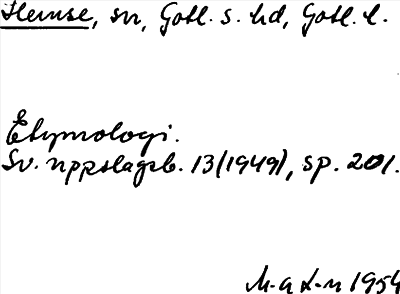 Hemse, sn, Gotl. s. hd, Gotl. l.
Etymologi.
Sv. uppslagsb. 13(1949), sp. 201.
M-a L-n 1954